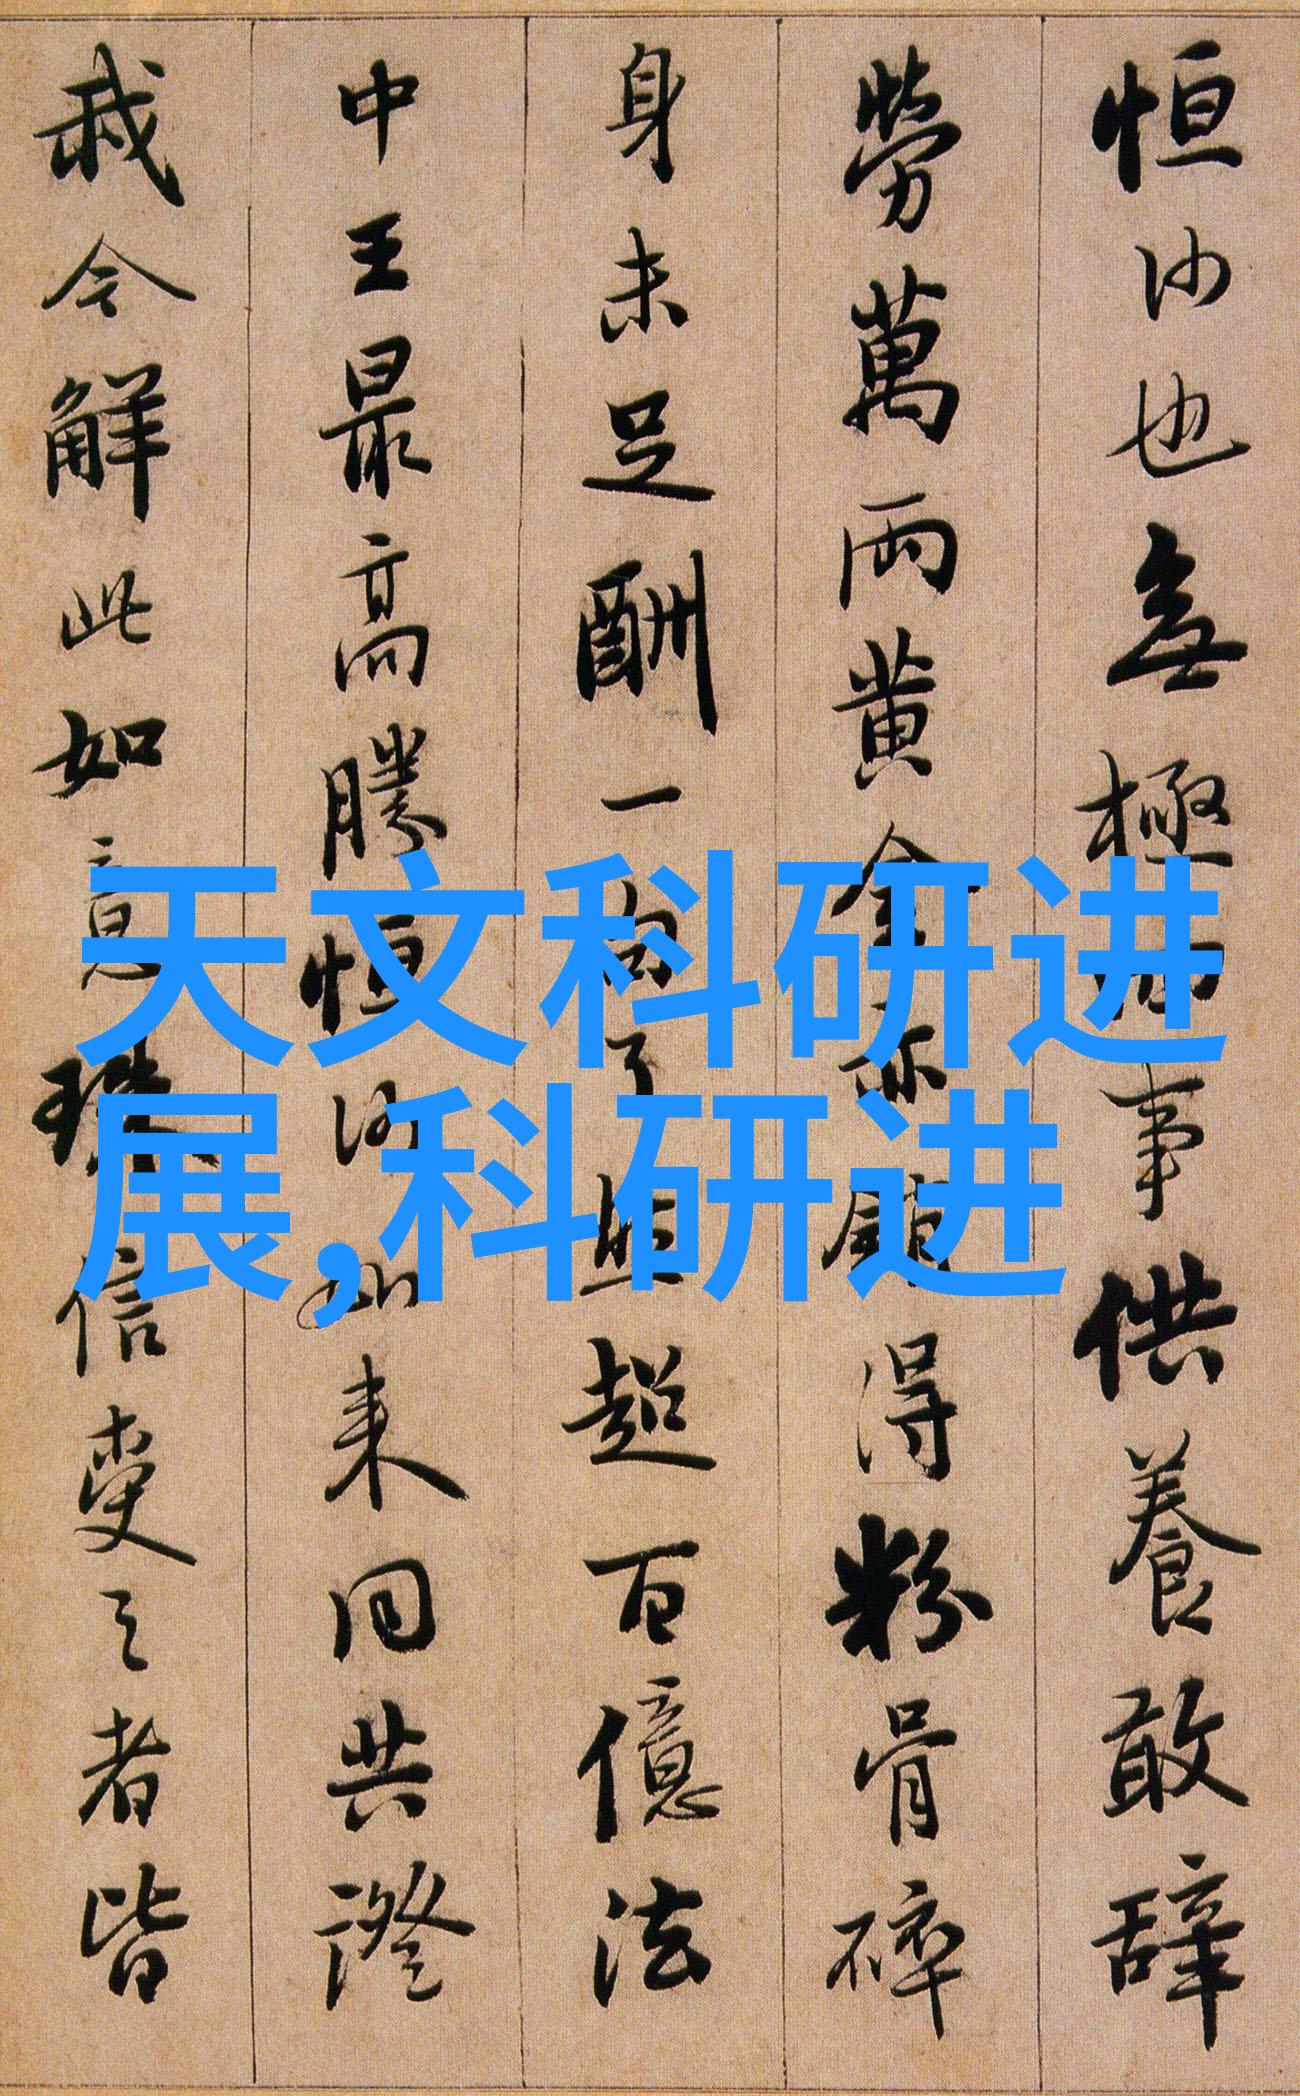 恒沙也無極為事供養敢辞
勞萬兩黄金亦銷得粉骨碎
身未足酬一句了然超百億法
中王最高勝恒沙如来同共證
我今解此如意珠信受之者皆
天文科研进
展,科研进